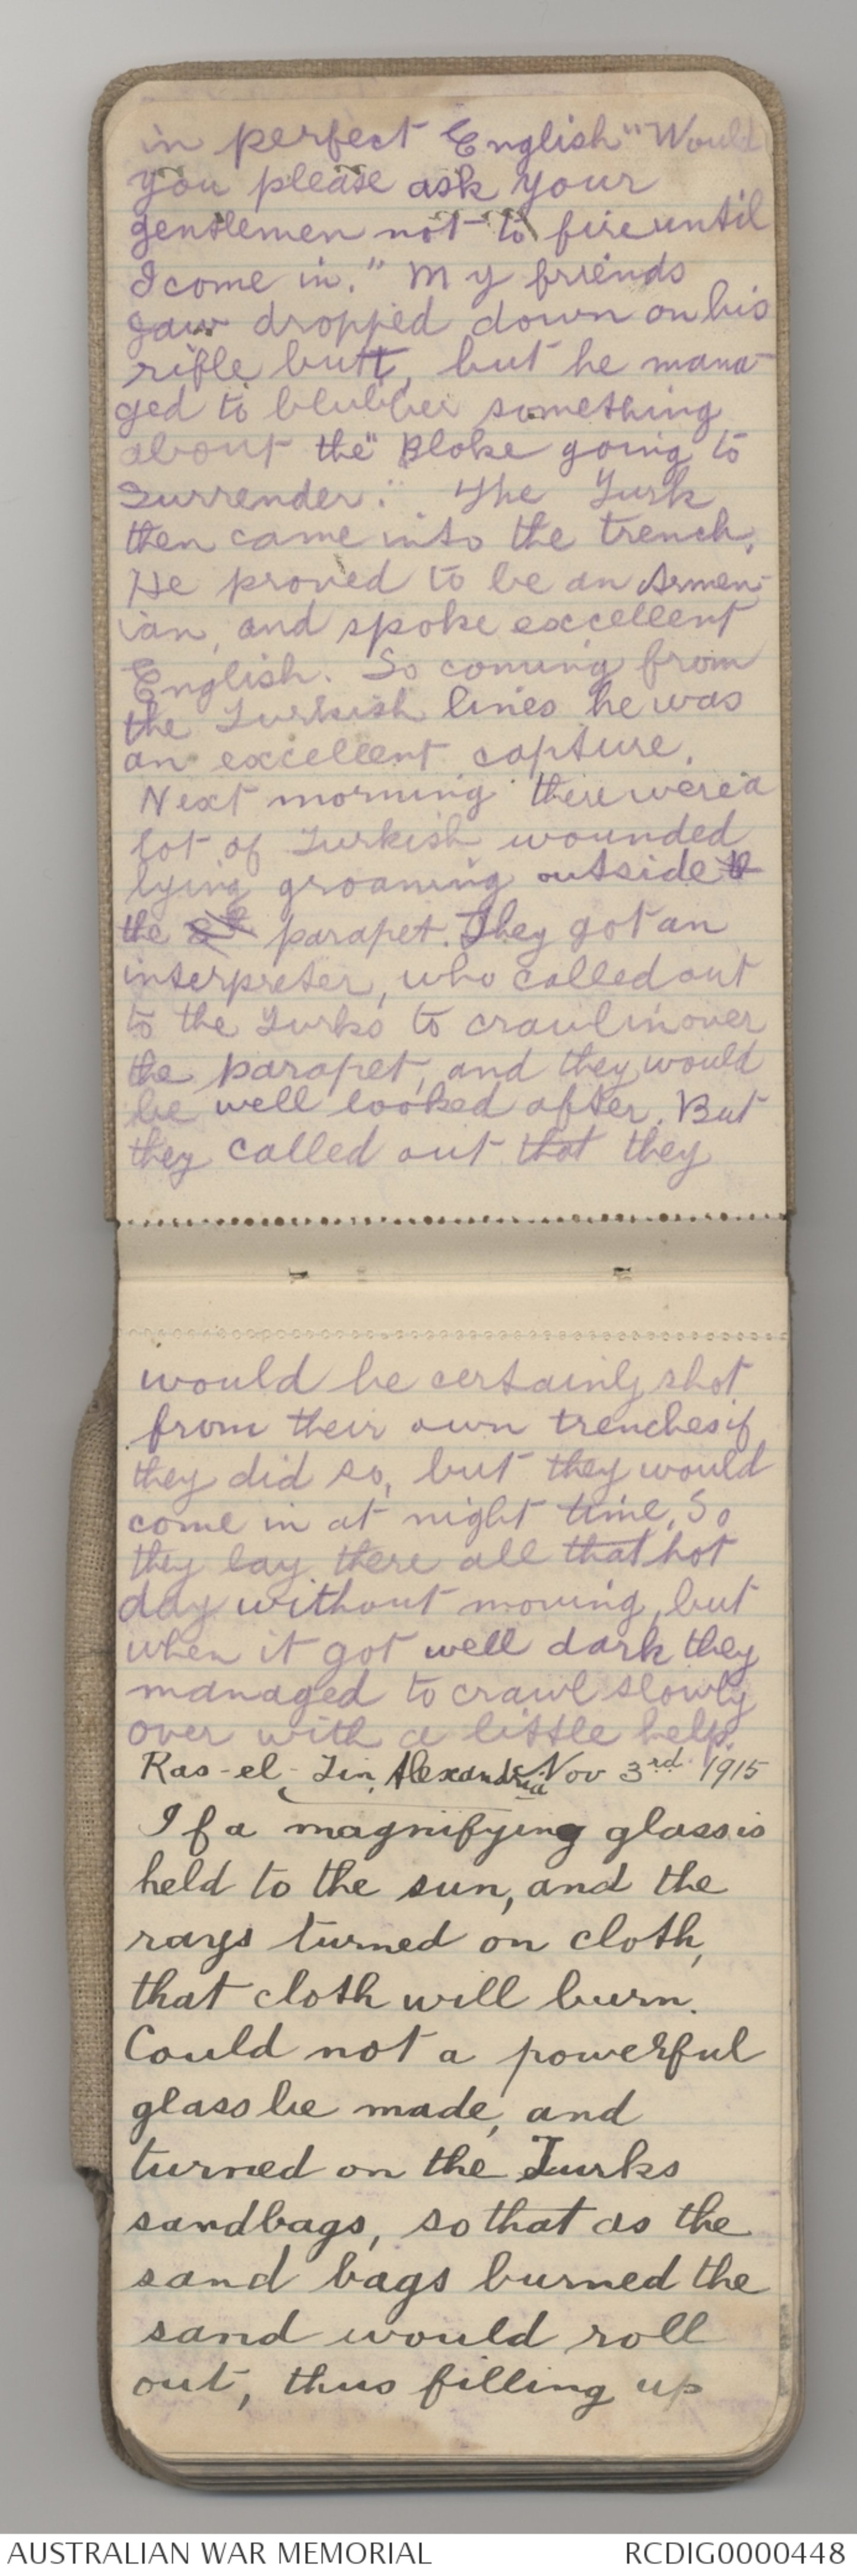 in perfect English "Would
you please ask your
gentlemen not to fire until
I come in." My friends
jaw dropped down on his
rifle butt, but he mana-
ged to blubber something
about the "Bloke going to
surrender." The Turk
then came into the trench.
He proved to be an Armen-
ian, and spoke excellent
English. So coming from
the Turkish lines he was
an excellent capture.
Next morning there were a
lot of Turkish wounded
lying groaning outside
the parapet. They got an
interpreter, who called out
to the Turks to crawl in over
the parapet, and they would
be well looked after. But
they called out that they
would be certainly shot
from their own trenches if
they did so, but they would
come in at night time. So
they lay there all that hot
day without moving, but
when it got well dark they
managed to crawl slowly
over with a little help.
Ras-el-Tin, Alexandria Nov 3rd 1915
If a magnifying glass is
held to the sun, and the
rays turned on cloth,
that cloth will burn.
Could not a powerful
glass be made, and
turned on the Turks
sandbags, so that as the
sand bags burned the
sand would roll
out, thus filling up
AUSTRALIAN WAR MEMORIAL RCDIG0000448